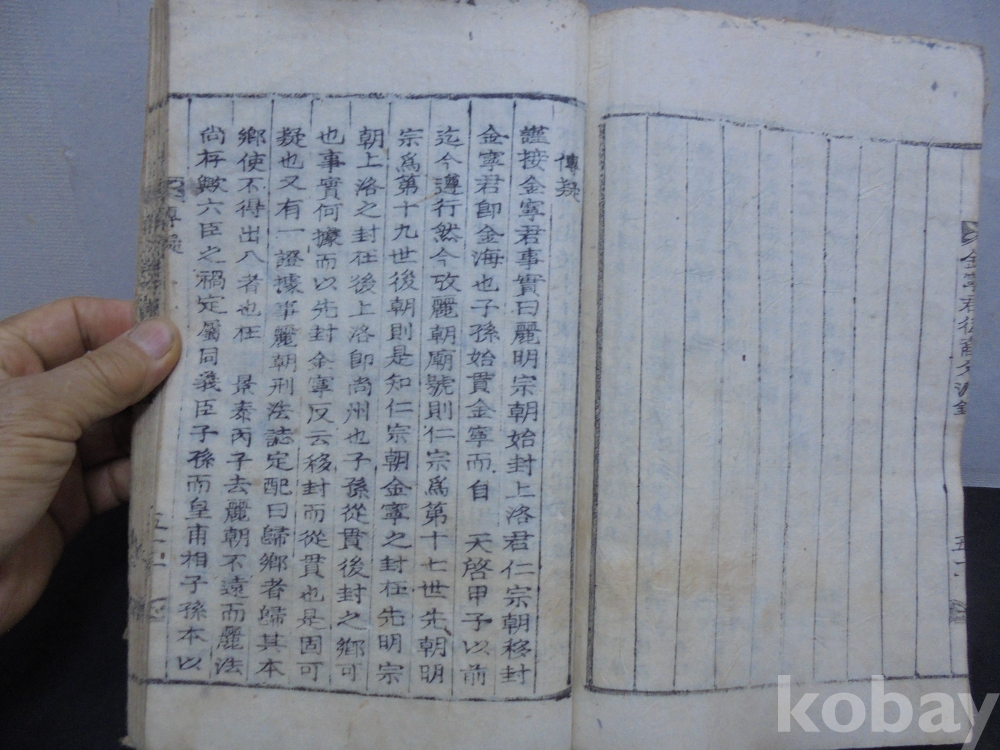 金寧君後䔍分派錄
傳疑
謹按金寧君事實曰麗明宗朝始封上洛君仁宗朝移封
金寧君卽金海也子孫始貫金寧而自 天啓甲子以前
迄今遵行然今攷麗朝廟號則仁宗爲第十七世先朝明
宗爲第十九世後朝則是知仁宗朝金寧之封在先明宗
朝上洛之封在後上洛卽尙州也子孫從貫後封之鄕可
也事實何據而以先封金寧反云移封而從貫也是固可
疑也又有一證據事麗朝刑法誌定配曰歸鄕者歸其本
鄕使不得出入者也在 景泰丙子去麗朝不遠而麗法
尙存歟六臣之禍定屬同義臣子孫而皇甫相子孫本以
傳疑
kobay